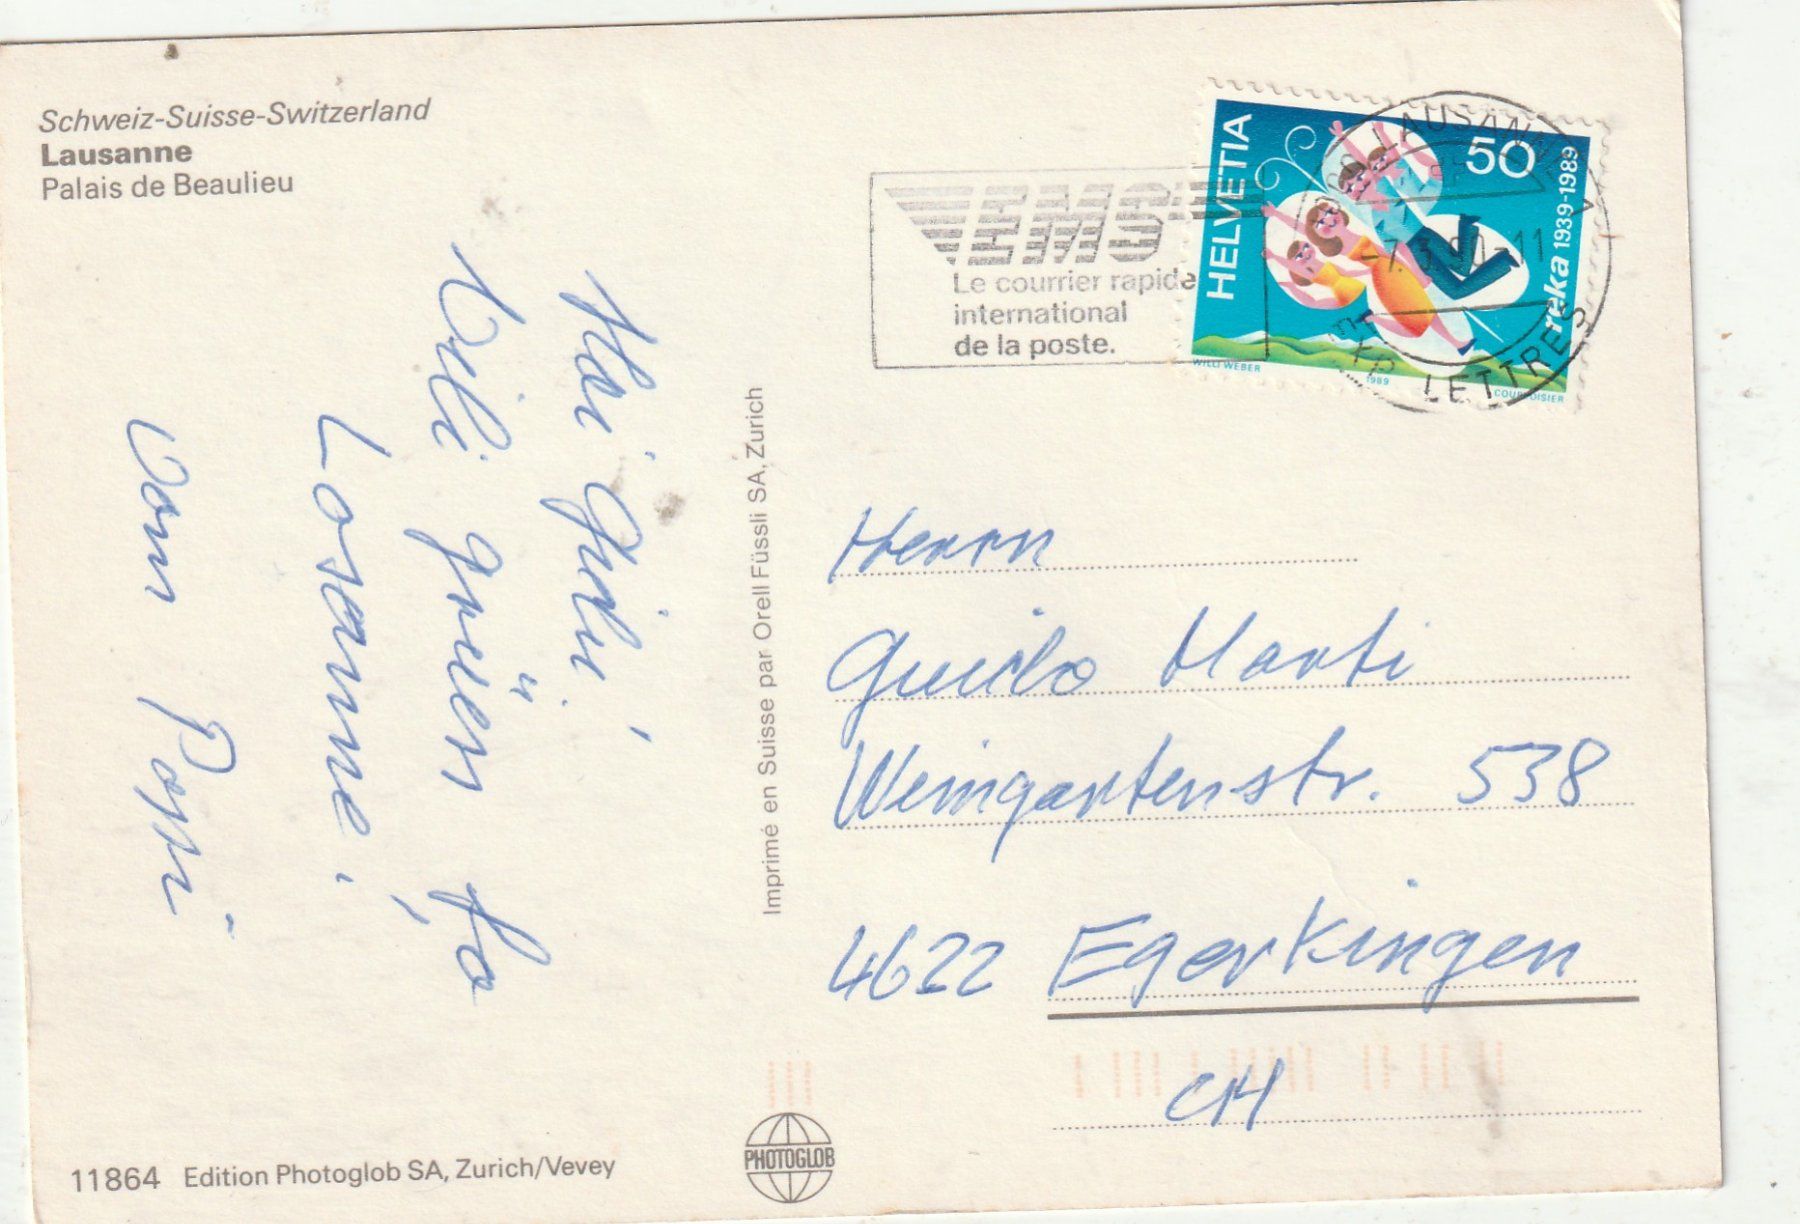 Schweiz-Suisse-Switzerland
Lausanne
Palais de Beaulieu
EMS
Le courrier rapide
international
de la poste.
HELVETIA
50
reka 1939-1989
WILLI WEBER
1989
COURVOISIER
LAUSANNE
-7.3.90-11
EXP LETTRES
Hai
Vili grüess
Losanne!
vom
Imprimé en Suisse par Orell Füssli SA, Zurich
Herrn
Guido Marti
Weingartenstr. 538
4622 Egerkingen
CH
11864 Edition Photoglob SA, Zurich/Vevey
PHOTOGLOB